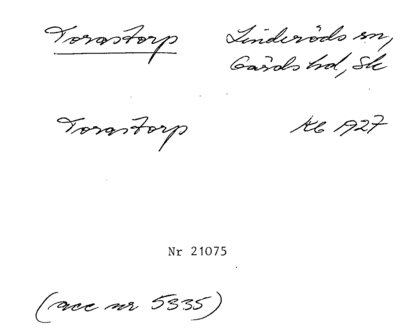 Torastorp Linderöds sn,
Gärds hd, Sk
Torastorp KG 1927
Nr 21075
(acc nr 5335)